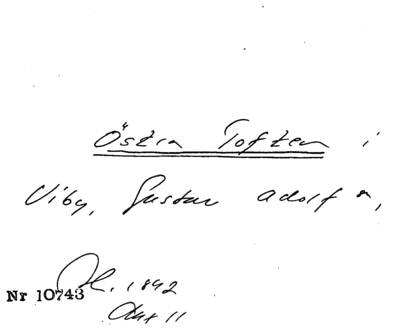 Östra Toften i
Viby, Gustav Adolf s,
H. 1842
Nr 10743
Akt 11